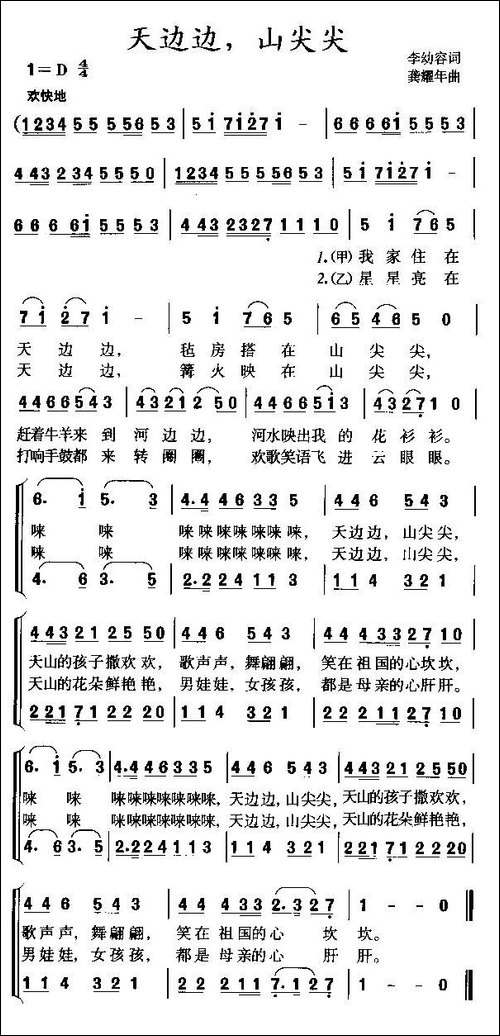 天边边，山尖尖
1=D 4/4
李幼容词
龚耀年曲
欢快地
(1234 5 5 5 5653 | 5 i 7i27i - | 6 6 6 6i 5 5 5 3 |
4 43 234 5 5 5 0 | 1234 5 5 5 5653 | 5 i 7i27i - |
6 6 6 6i 5 5 5 3 | 4 43 2327 1 1 1 0 | 5 i 7 6 5 |
1.(甲)我家住在
2.(乙)星星亮在
7 i 2 7 i - | 5 i 7 6 5 | 6 5 4 6 5 0 |
天边边， 毡房搭在 山尖尖，
天边边， 篝火映在 山尖尖，
4 4 6 6 5 4 5 | 4 3 2 1 2 5 0 | 4 4 6 6 5 1 3 | 4 3 2 7 1 0 |
赶着牛羊来到河边边， 河水映出我的花衫衫。
打响手鼓都来转圈圈， 欢歌笑语飞进云眼眼。
6. i 5. 3 | 4.4 4 6 3 3 5 | 4 4 6 5 4 3 |
唻 唻 唻唻唻唻唻唻唻， 天边边，山尖尖，
唻 唻 唻唻唻唻唻唻唻， 天边边，山尖尖，
4. 6 3. 5 | 2.2 2 4 1 1 3 | 1 1 4 3 2 1 |
4 4 3 2 1 2 5 5 0 | 4 4 6 5 4 3 | 4 4 4 3 3 2 7 1 0 |
天山的孩子撒欢欢， 歌声声，舞翩翩， 笑在祖国的心坎坎，
天山的花朵鲜艳艳， 男娃娃，女孩孩， 都是母亲的心肝肝。
2 2 1 7 1 2 2 2 0 | 1 1 4 3 2 1 | 2 2 2 1 1 2 7 1 0 |
6. i 5. 3 | 4.4 4 6 3 3 5 | 4 4 6 5 4 3 | 4 4 3 2 1 2 5 5 0 |
唻 唻 唻唻唻唻唻唻唻， 天边边，山尖尖， 天山的孩子撒欢欢，
唻 唻 唻唻唻唻唻唻唻， 天边边，山尖尖， 天山的花朵鲜艳艳，
4. 6 3. 5 | 2.2 2 4 1 1 3 | 1 1 4 3 2 1 | 2 2 1 7 1 2 2 2 0 |
4 4 6 5 4 3 | 4 4 4 3 0 2.3 2 7 | 1 - - 0 |
歌声声，舞翩翩， 笑在祖国的心 坎 坎。
男娃娃，女孩孩， 都是母亲的心 肝 肝。
1 1 4 3 2 1 | 2 2 2 1 0 7.1 2 7 | 1 - - 0 |